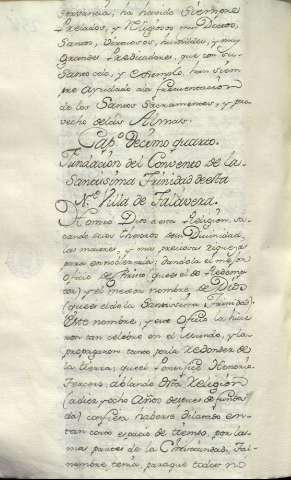 servancia; ha havido siempre
Prelados, y Religiosos muy Doctos,
Santos, Virtuosos, humildes, y muy
Grandes Predicadores, que con su
Santo celo, y exemplo, han siem
pre ayudado a la frecuentacion
de los Santos Sacramentos, y pro
vecho de las Almas.
Capº. Decimo quarto.
Fundacion del Convento de la
Santissima Trinidad de esta
Nᵉ. Villa de Talavera.
Honrró Dios a esta Religion, sa
cando de los thesoros de su Divinidad,
las maiores, y mas preciosas riquezas
para ennoblecerla; dandola el mejor
oficio de Christo, que es el de Redemp
tor) y el mejor nombre de Dios
(que es el de la Santissima Trinidad).
Este nombre, y este oficio la hicie
ron tan celebre en el mundo, y la
propagaron tanto por la redondez de
la tierra, que el Pontifice Honorio
Tercero, hablando de esta Religion
(a diez y ocho años despues de funda
da) confiesa haberse dilatado en
tan corto espacio de tiempo, por las
mas partes de la Christiandad. Tal
nombre tenia, para que todos no